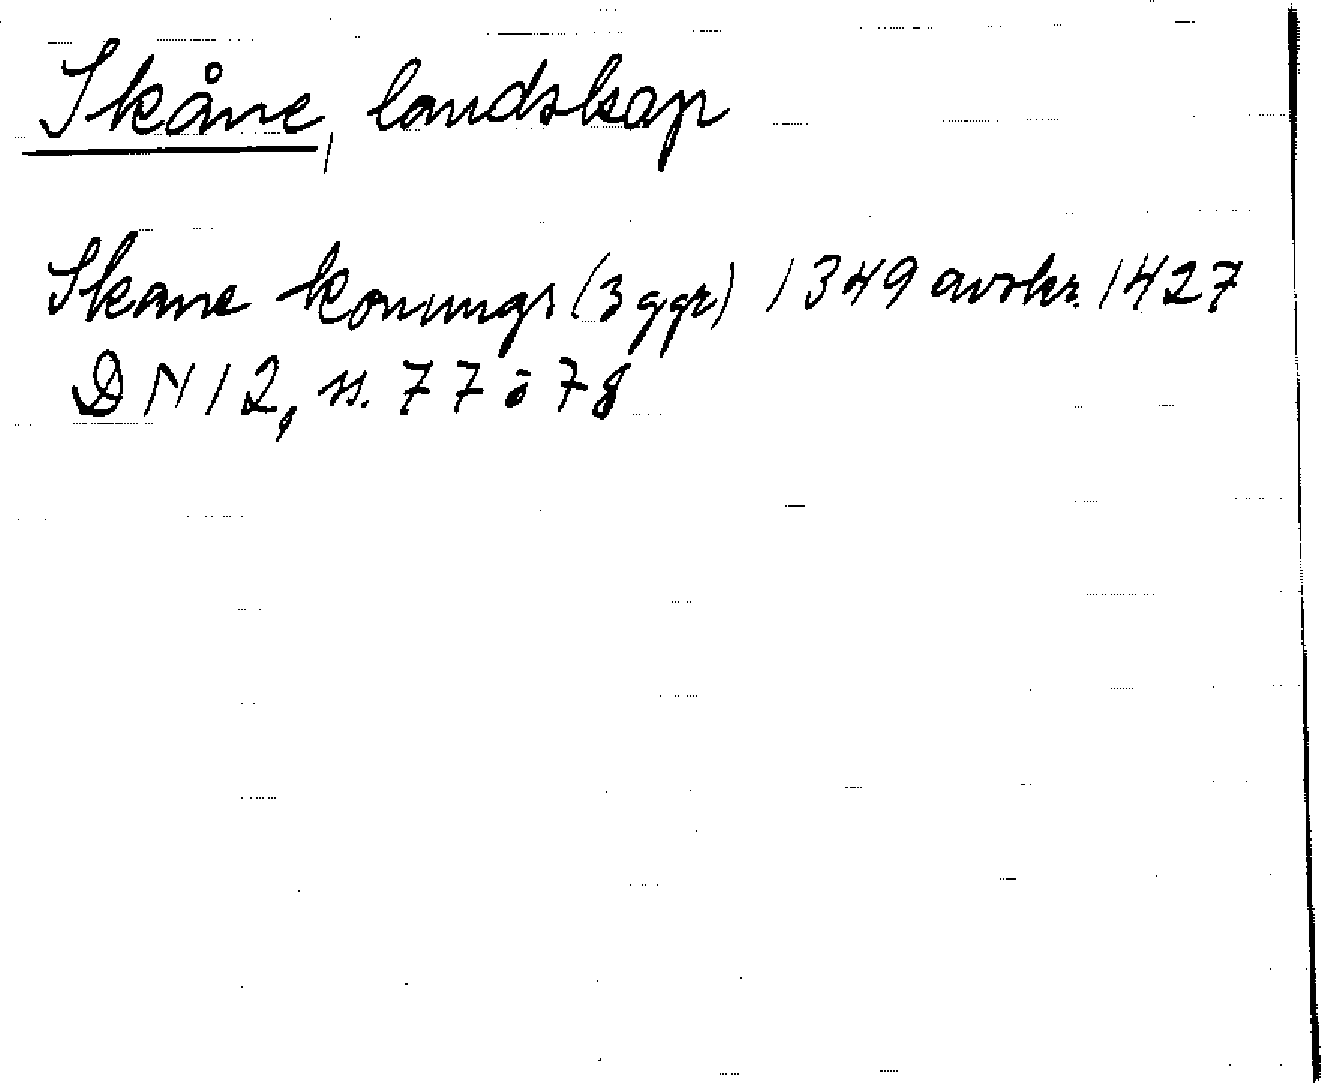 Skåne, landskap
Skane konungs (3 ggr) 1349 avskr. 1427
DN 12, s. 77 o 78